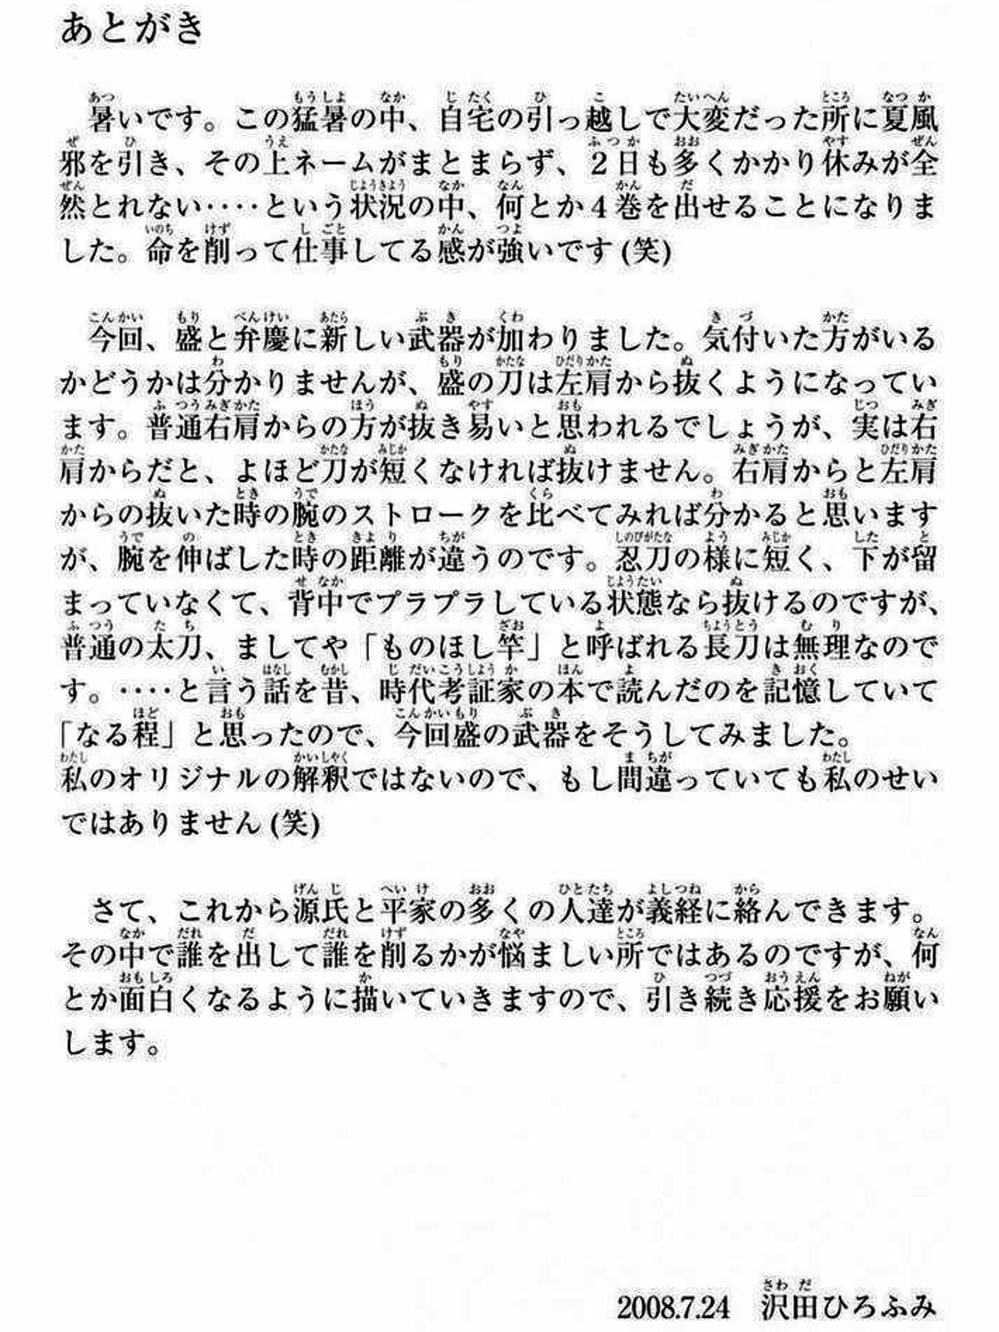 あとがき
暑いです。この猛暑の中、自宅の引っ越しで大変だった所に夏風
邪を引き、その上ネームがまとまらず、２日も多くかかり休みが全
然とれない‥‥という状況の中、何とか４巻を出せることになりま
した。命を削って仕事してる感が強いです(笑)
今回、盛と弁慶に新しい武器が加わりました。気付いた方がいる
かどうかは分かりませんが、盛の刀は左肩から抜くようになってい
ます。普通右肩からの方が抜き易いと思われるでしょうが、実は右
肩からだと、よほど刀が短くなければ抜けません。右肩からと左肩
からの抜いた時の腕のストロークを比べてみれば分かると思います
が、腕を伸ばした時の距離が違うのです。忍刀の様に短く、下が留
まっていなくて、背中でプラプラしている状態なら抜けるのですが、
普通の太刀、ましてや「ものほし竿」と呼ばれる長刀は無理なので
す。‥‥と言う話を昔、時代考証家の本で読んだのを記憶していて
「なる程」と思ったので、今回盛の武器をそうしてみました。
私のオリジナルの解釈ではないので、もし間違っていても私のせい
ではありません(笑)
さて、これから源氏と平家の多くの人達が義経に絡んできます。
その中で誰を出して誰を削るかが悩ましい所ではあるのですが、何
とか面白くなるように描いていきますので、引き続き応援をお願い
します。
2008.7.24　沢田ひろふみ